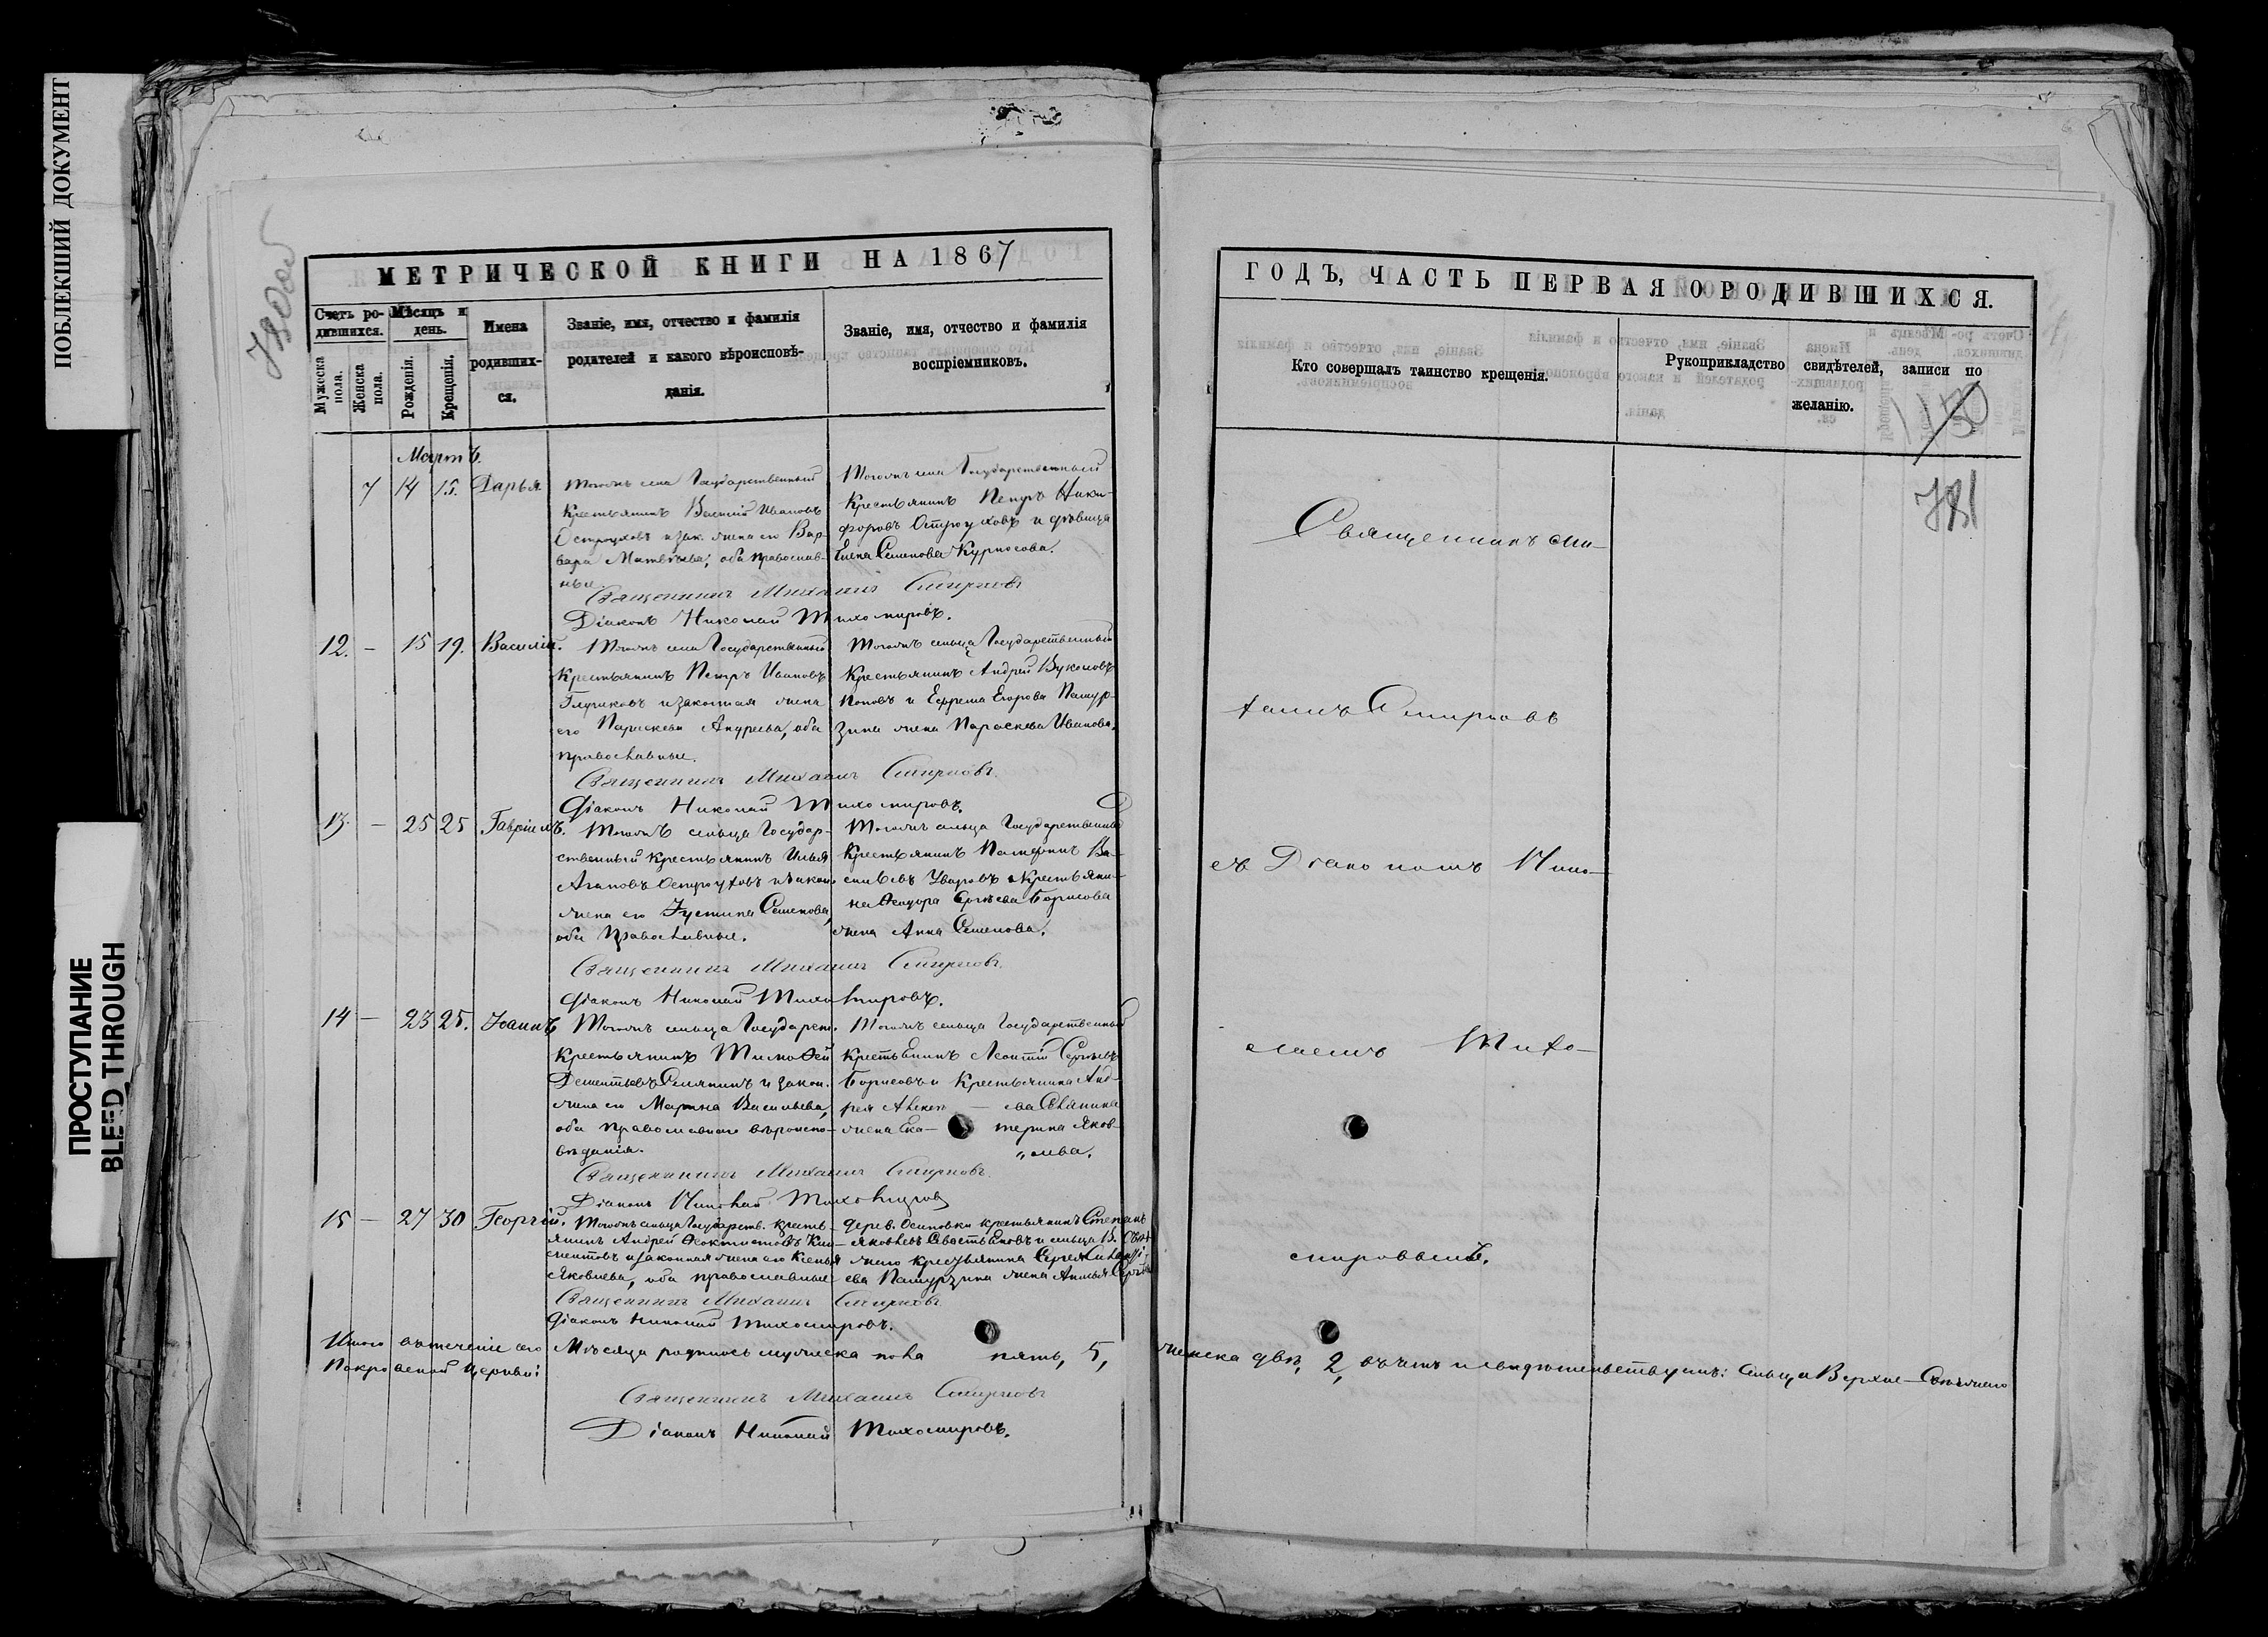 ПОБЛЕКШИЙ ДОКУМЕНТ
ПРОСТУПАНИЕ
BLEED THROUGH
780об
МЕТРИЧЕСКОЙ КНИГИ НА 1867
Счетъ ро-
дившихся.
Мѣсяцъ и
день.
Мужеска
пола.
Женска
пола.
Рожденія.
Крещенія.
Имена
родивших-
ся.
Званіе, имя, отчество и фамилія
родителей и какого вѣроисповѣ-
данія.
Званіе, имя, отчество и фамилія
воспріемниковъ.
Мартъ.
7 14 15. Дарья
Государственный
Крестьянинъ Василій Ивановъ
Остроуховъ и зак. жена его Вар-
вара Матвѣева; оба православ-
ные.
Государственный
Крестьянинъ Петръ Ники-
форовъ Остроуховъ и дѣвица
Елена Семенова Курносова.
Священникъ Михаилъ Смирновъ
Діаконъ Николай Тихомировъ.
12. – 15 19. Василій.
Государственный
Крестьянинъ Петръ Ивановъ
и законная жена
его Параскева Андреева, оба
православные.
сельца Государственный
Крестьянинъ Андрей Вуколовъ
Поповъ и Ефрема Егорова Пашур-
зина жена Параскева Иванова.
Священникъ Михаилъ Смирновъ.
Діаконъ Николай Тихомировъ.
13. – 25 25 Гавріилъ.
сельца Государ-
ственный Крестьянинъ Илья
Агаповъ Остроуховъ и закон.
жена его Іустина Семенова,
оба православные.
сельца Государственный
Крестьянинъ Ва-
сильевъ Уваровъ и Крестьяни-
на Ѳеодора Сергѣева Борисова
жена Анна Семенова.
Священникъ Михаилъ Смирновъ.
Діаконъ Николай Тихомировъ.
14 – 23 25. Іоаннъ
сельца Государст.
Крестьянинъ Тимоѳей
Дементьевъ Селянинъ и закон.
жена его Марѳа Васильева,
оба православнаго вѣроиспо-
вѣданія.
сельца Государственный
Крестьянинъ Леонтій Сергѣевъ
Борисовъ и Крестьянина Анд-
рея Алексѣ – ева Селянина
жена Ека – терина Яков-
„лева.
Священникъ Михаилъ Смирновъ.
Діаконъ Николай Тихомировъ
15 – 27 30 Георгій.
сельца Государств. кресть-
янинъ Андрей Ѳеоктистовъ Кли-
ментовъ и законная жена его Ксенья
Яковлева, оба православные
дерев. Осиповки крестьянинъ Степанъ
Яковлевъ Севостьяновъ и сельца В. Свят-
ева Пашурзина жена
Священникъ Михаилъ Смирновъ
Діаконъ Николай Тихомировъ.
Итого въ теченіе сего Мѣсяца родилось мужеска пола пять, 5,
женска двѣ, 2,
Покровской Церкви:
Священникъ Михаилъ Смирновъ
Діаконъ Николай Тихомировъ.
ГОДЪ, ЧАСТЬ ПЕРВАЯ О РОДИВШИХСЯ.
Кто совершалъ таинство крещенія.
Рукоприкладство свидѣтелей, записи по
желанію.
781
Священникъ Ми-
хаилъ Смирновъ
съ Діакономъ Нико-
лаемъ Тихо-
мировымъ.